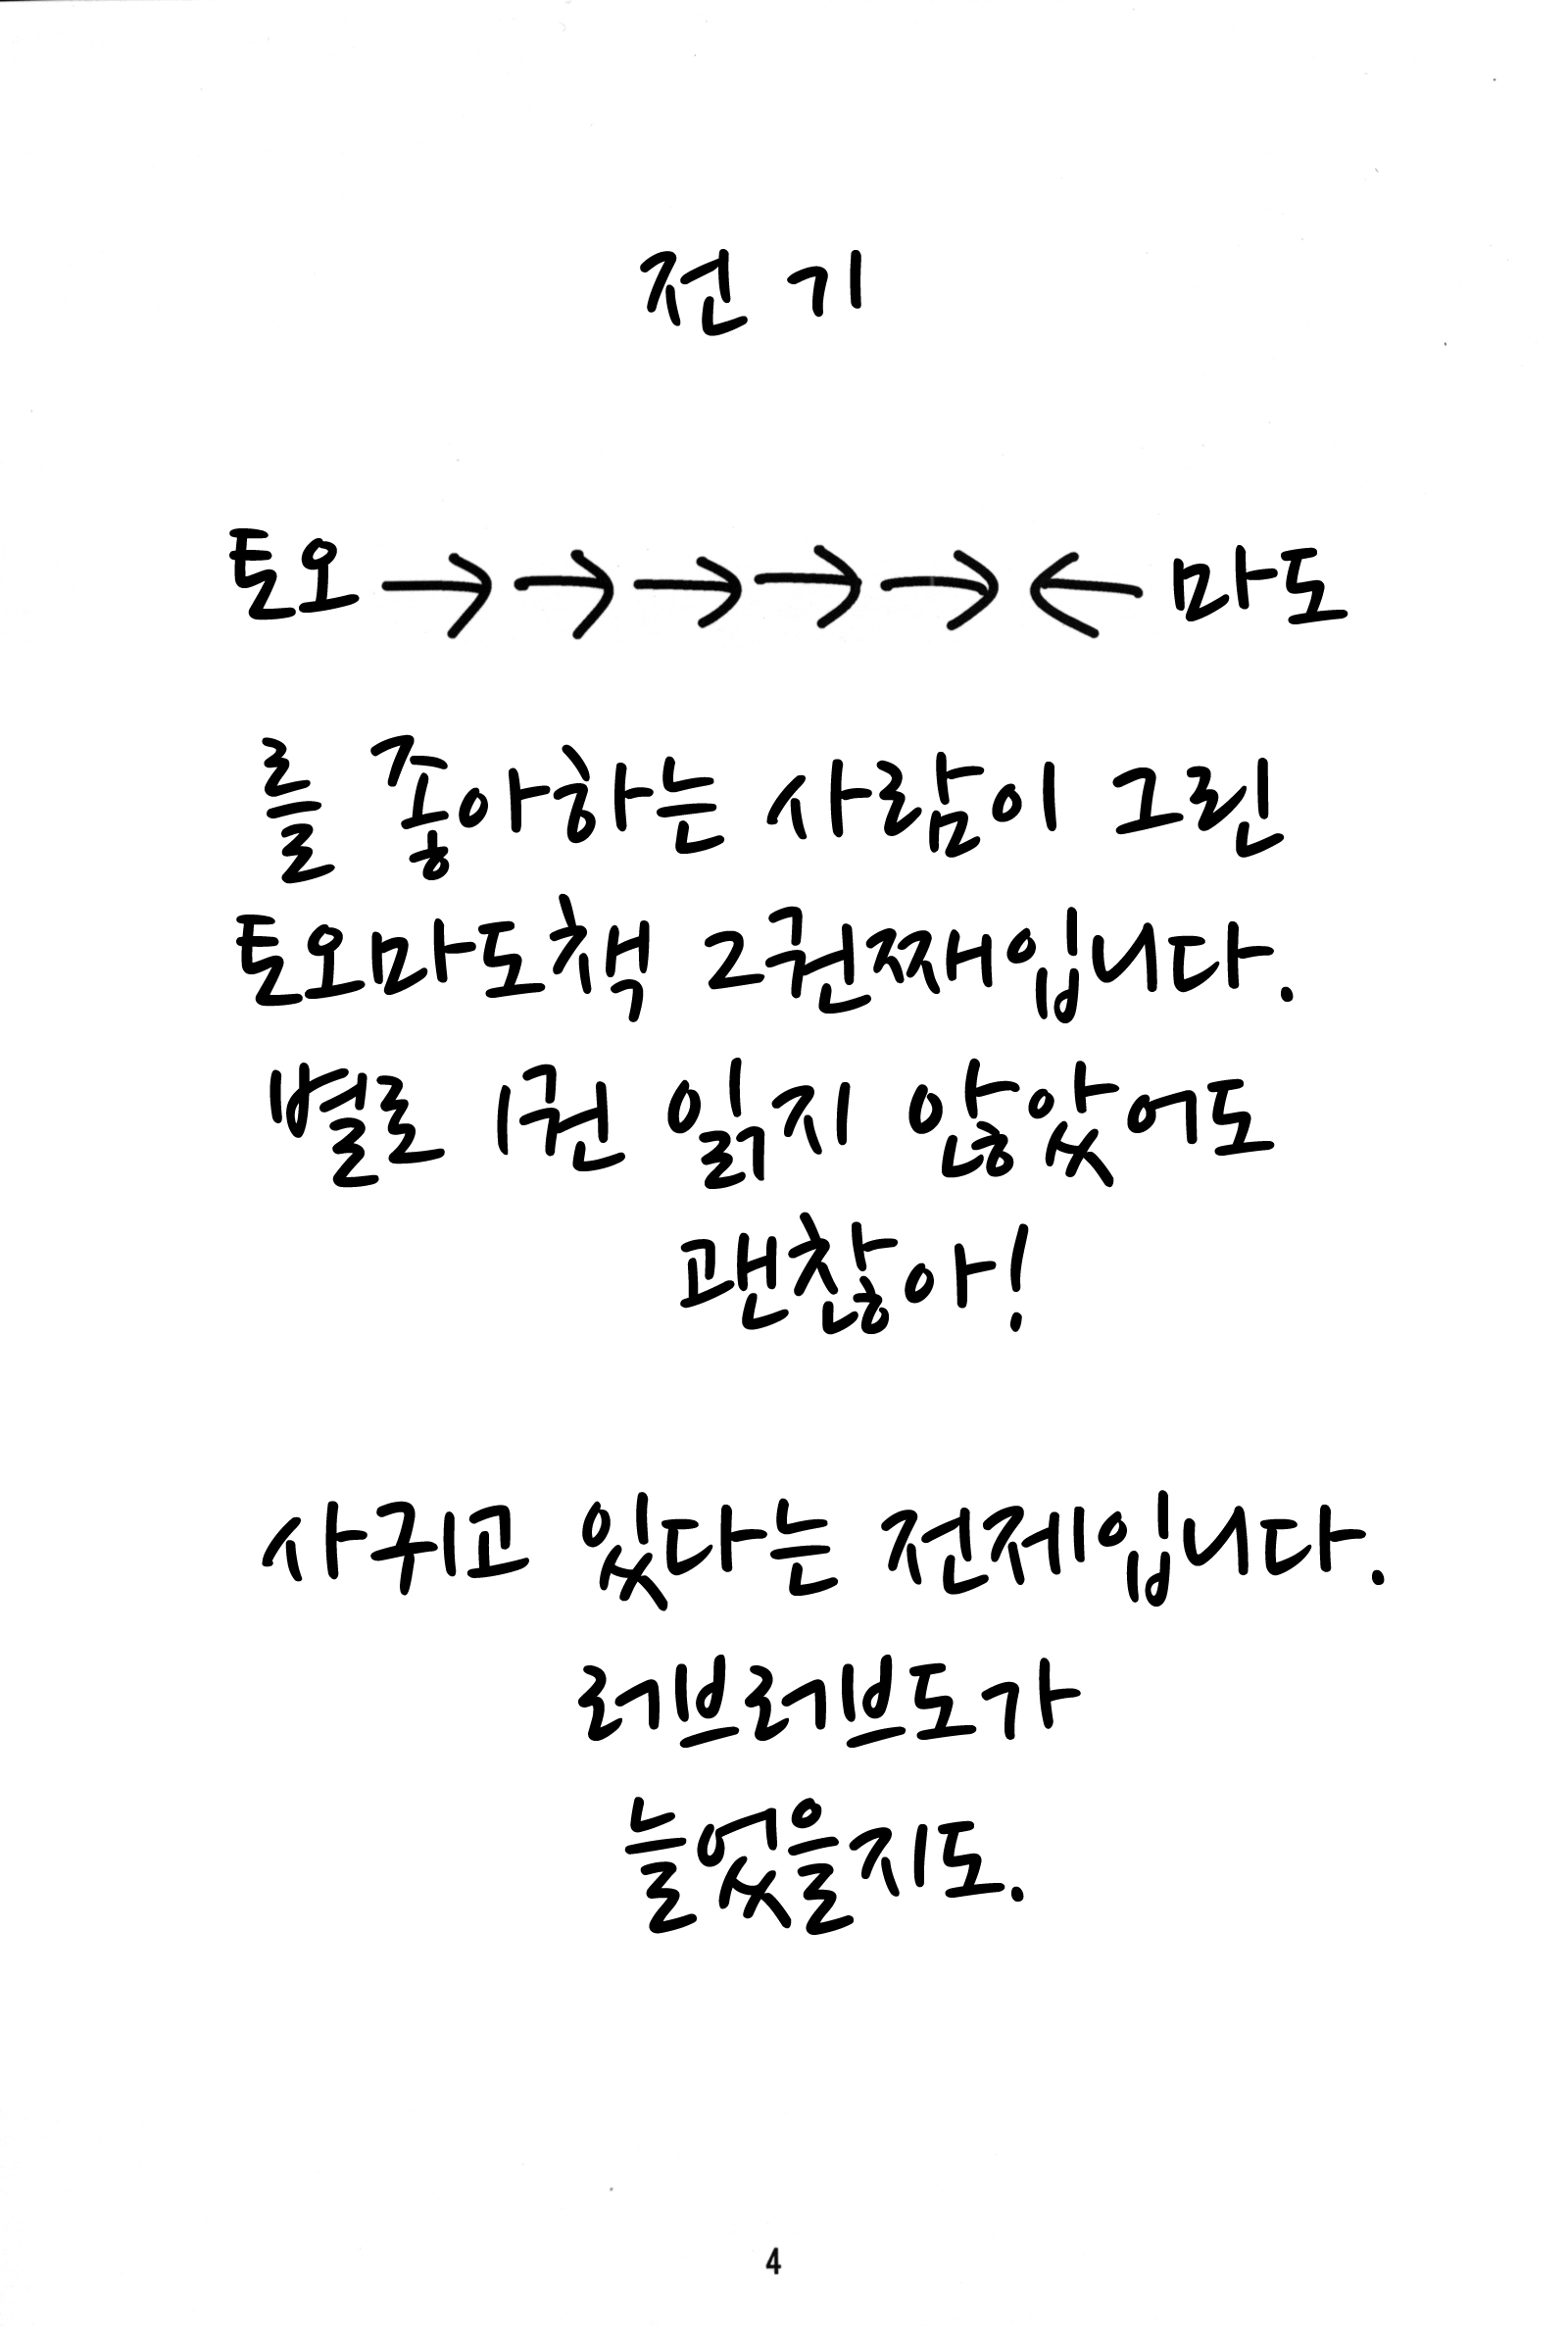 전기
토오 →→→→→← 마도
를 좋아하는 사람이 그린
토오마도책 2권째입니다.
별로 1권 읽지 않았어도
괜찮아!
사귀고 있다는 전제입니다.
러브러브도가
늘었을지도.
4